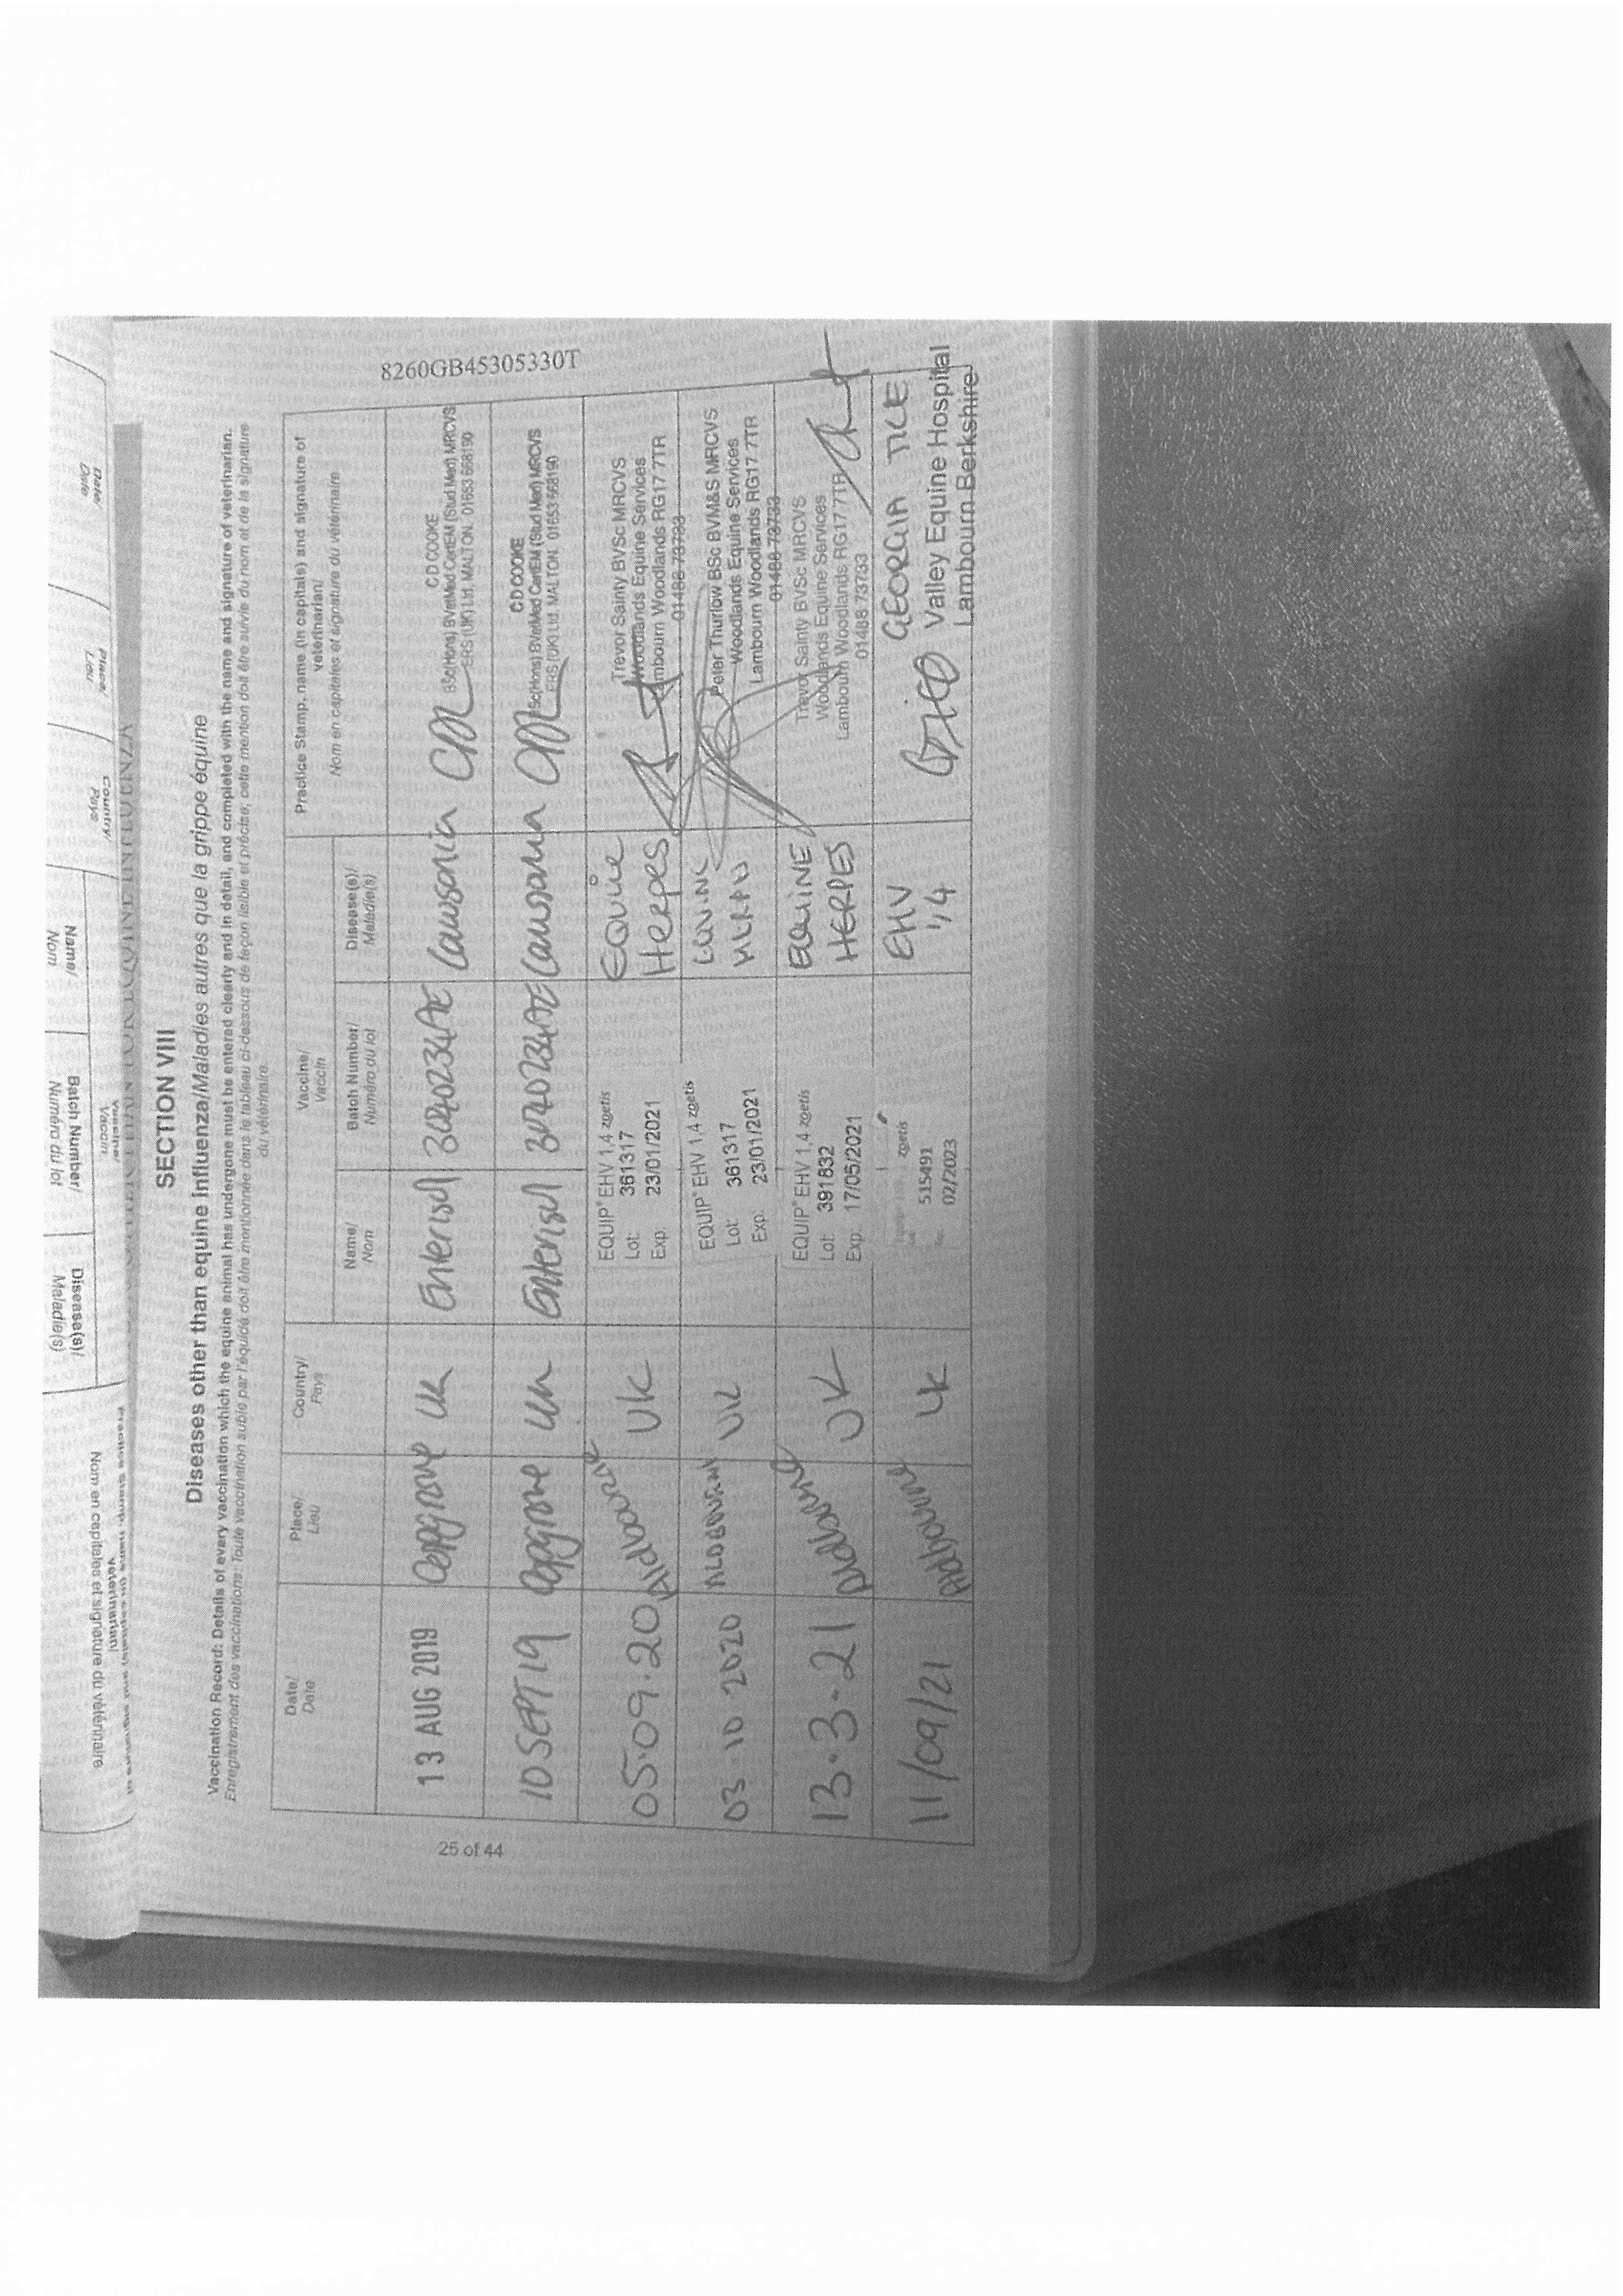 Date/
Date
Place/
Lieu
Country/
Pays
Name/
Nom
Batch Number/
Numéro du lot
Vaccine/
Vaccin
Disease(s)/
Maladie(s)
Nom en capitales et signature du vétérinaire
veterinarian/
SECTION VIII
Diseases other than equine influenza/Maladies autres que la grippe équine
Vaccination Record: Details of every vaccination which the equine animal has undergone must be entered clearly and in detail, and completed with the name and signature of veterinarian.
Enregistrement des vaccinations: Toute vaccination subie par l'équidé doit être mentionnée dans le tableau ci-dessous de façon lisible et précise, cette mention doit être suivie du nom et de la signature
du vétérinaire.
Date/
Date
Place/
Lieu
Country/
Pays
Vaccine/
Vaccin
Name/
Nom
Batch Number/
Numéro du lot
Disease(s)/
Maladie(s)
Practice Stamp, name (in capitals) and signature of
veterinarian/
Nom en capitales et signature du vétérinaire
13 AUG 2019
Copgrove
UK
Enterisol
3040234AE
Lawsonia
C D COOKE
BSc(Hons) BVetMed CertEM (Stud Med) MRCVS
ERS (UK) Ltd. MALTON. 01653 668190
10 SEPT 19
Copgrove
UK
Enterisol
3040234AE
Lawsonia
C D COOKE
BSc(Hons) BVetMed CertEM (Stud Med) MRCVS
ERS (UK) Ltd. MALTON. 01653 668190
05·09·20
Aldbourne
UK
EQUIP® EHV 1,4 zoetis
Lot: 361317
Exp: 23/01/2021
EQUine
Herpes
Trevor Sainty BVSc MRCVS
Woodlands Equine Services
Lambourn Woodlands RG17 7TR
01488 73733
03 10 2020
ALDBOURNE
UK
EQUIP® EHV 1,4 zoetis
Lot: 361317
Exp: 23/01/2021
EQUINE
HERPES
Peter Thurlow BSc BVM&S MRCVS
Woodlands Equine Services
Lambourn Woodlands RG17 7TR
01488 73733
13·3·21
Aldbourne
UK
EQUIP® EHV 1,4 zoetis
Lot: 391832
Exp: 17/05/2021
EQUINE
HERPES
Trevor Sainty BVSc MRCVS
Woodlands Equine Services
Lambourn Woodlands RG17 7TR
01488 73733
11/09/21
Aldbourne
UK
zoetis
515491
02/2023
EHV
1,4
GEORGIA TICE
Valley Equine Hospital
Lambourn Berkshire
25 of 44
8260GB45305330T